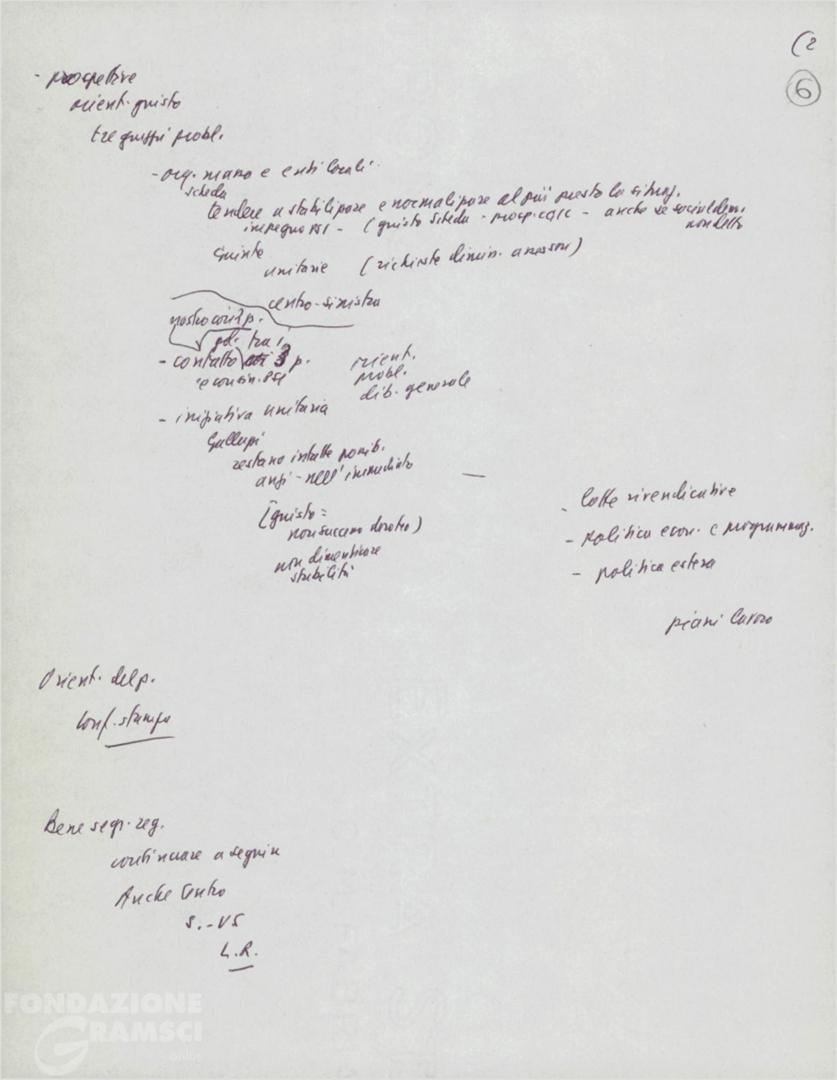 (2
6
- prospettive
orient. giusto
tre gruppi probl.
- org. mano e enti locali
scheda
tendere a stabilizzare e normalizzare al più presto la situaz.
impegno PSI - (giusto scheda - prosp. - anche se socialdem.
non detto
Giunte
unitarie (richieste dimin. assessori)
centro-sinistra
nostro
- contatto p.
orient.
probl.
dib. generale
- iniziativa unitaria
Gallupi
restano intatte possib.
anzi - nell'immediato
(giusto =
non dimenticare
stabilità
- lotte rivendicative
- politica econ. e programmaz.
- politica estera
piani lavoro
Orient. del p.
conf. stampa
Bene segr. reg.
continuare a seguire
Anche Centro
S. - VS
L.R.
FONDAZIONE
GRAMSCI
online